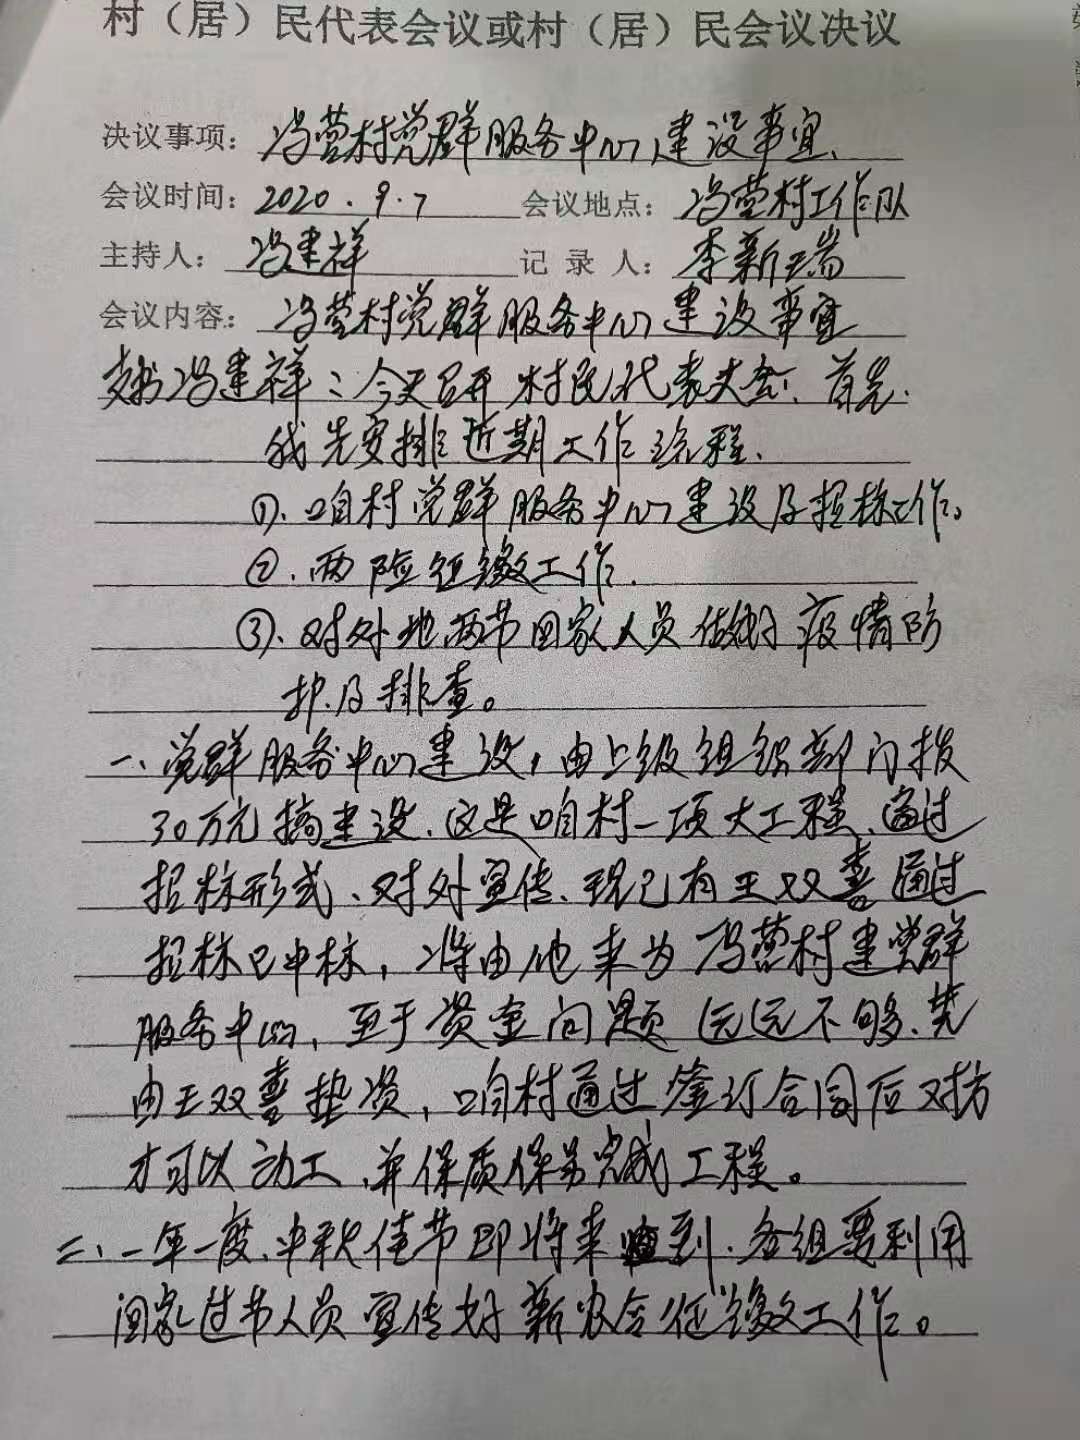 村（居）民代表会议或村（居）民会议决议
决议事项：冯营村党群服务中心建设事宜、
会议时间：2020.9.7 会议地点：冯营村工作队
主持人：冯建祥 记录人：李新瑞
会议内容：冯营村党群服务中心建设事宜
支书冯建祥：今天召开村民代表大会、首先、
我先安排近期工作流程、
①、咱村党群服务中心建设及招标工作。
②、两险征缴工作.
③、对外地两节回家人员做好疫情防
护及排查。
一、党群服务中心建设，由上级组织部门拨
30万元搞建设、这是咱村一项大工程、通过
招标形式、对外宣传、现已有王双喜通过
招标已中标，将由他来为冯营村建党群
服务中心，至于资金问题远远不够、先
由王双喜垫资，咱村通过签订合同后对方
才可以动工、并保质保量完成工程。
二、一年一度、中秋佳节即将来到、各组要利用
回家过节人员宣传好新农合征缴工作。